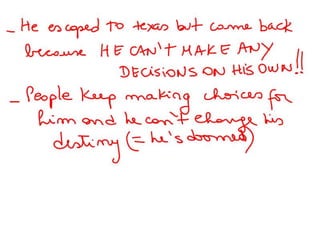 - He escaped to texas but came back
because HE CAN'T MAKE ANY
DECISIONS ON HIS OWN!!
- People keep making choices for
him and he can't change his
destiny (= he's doomed)